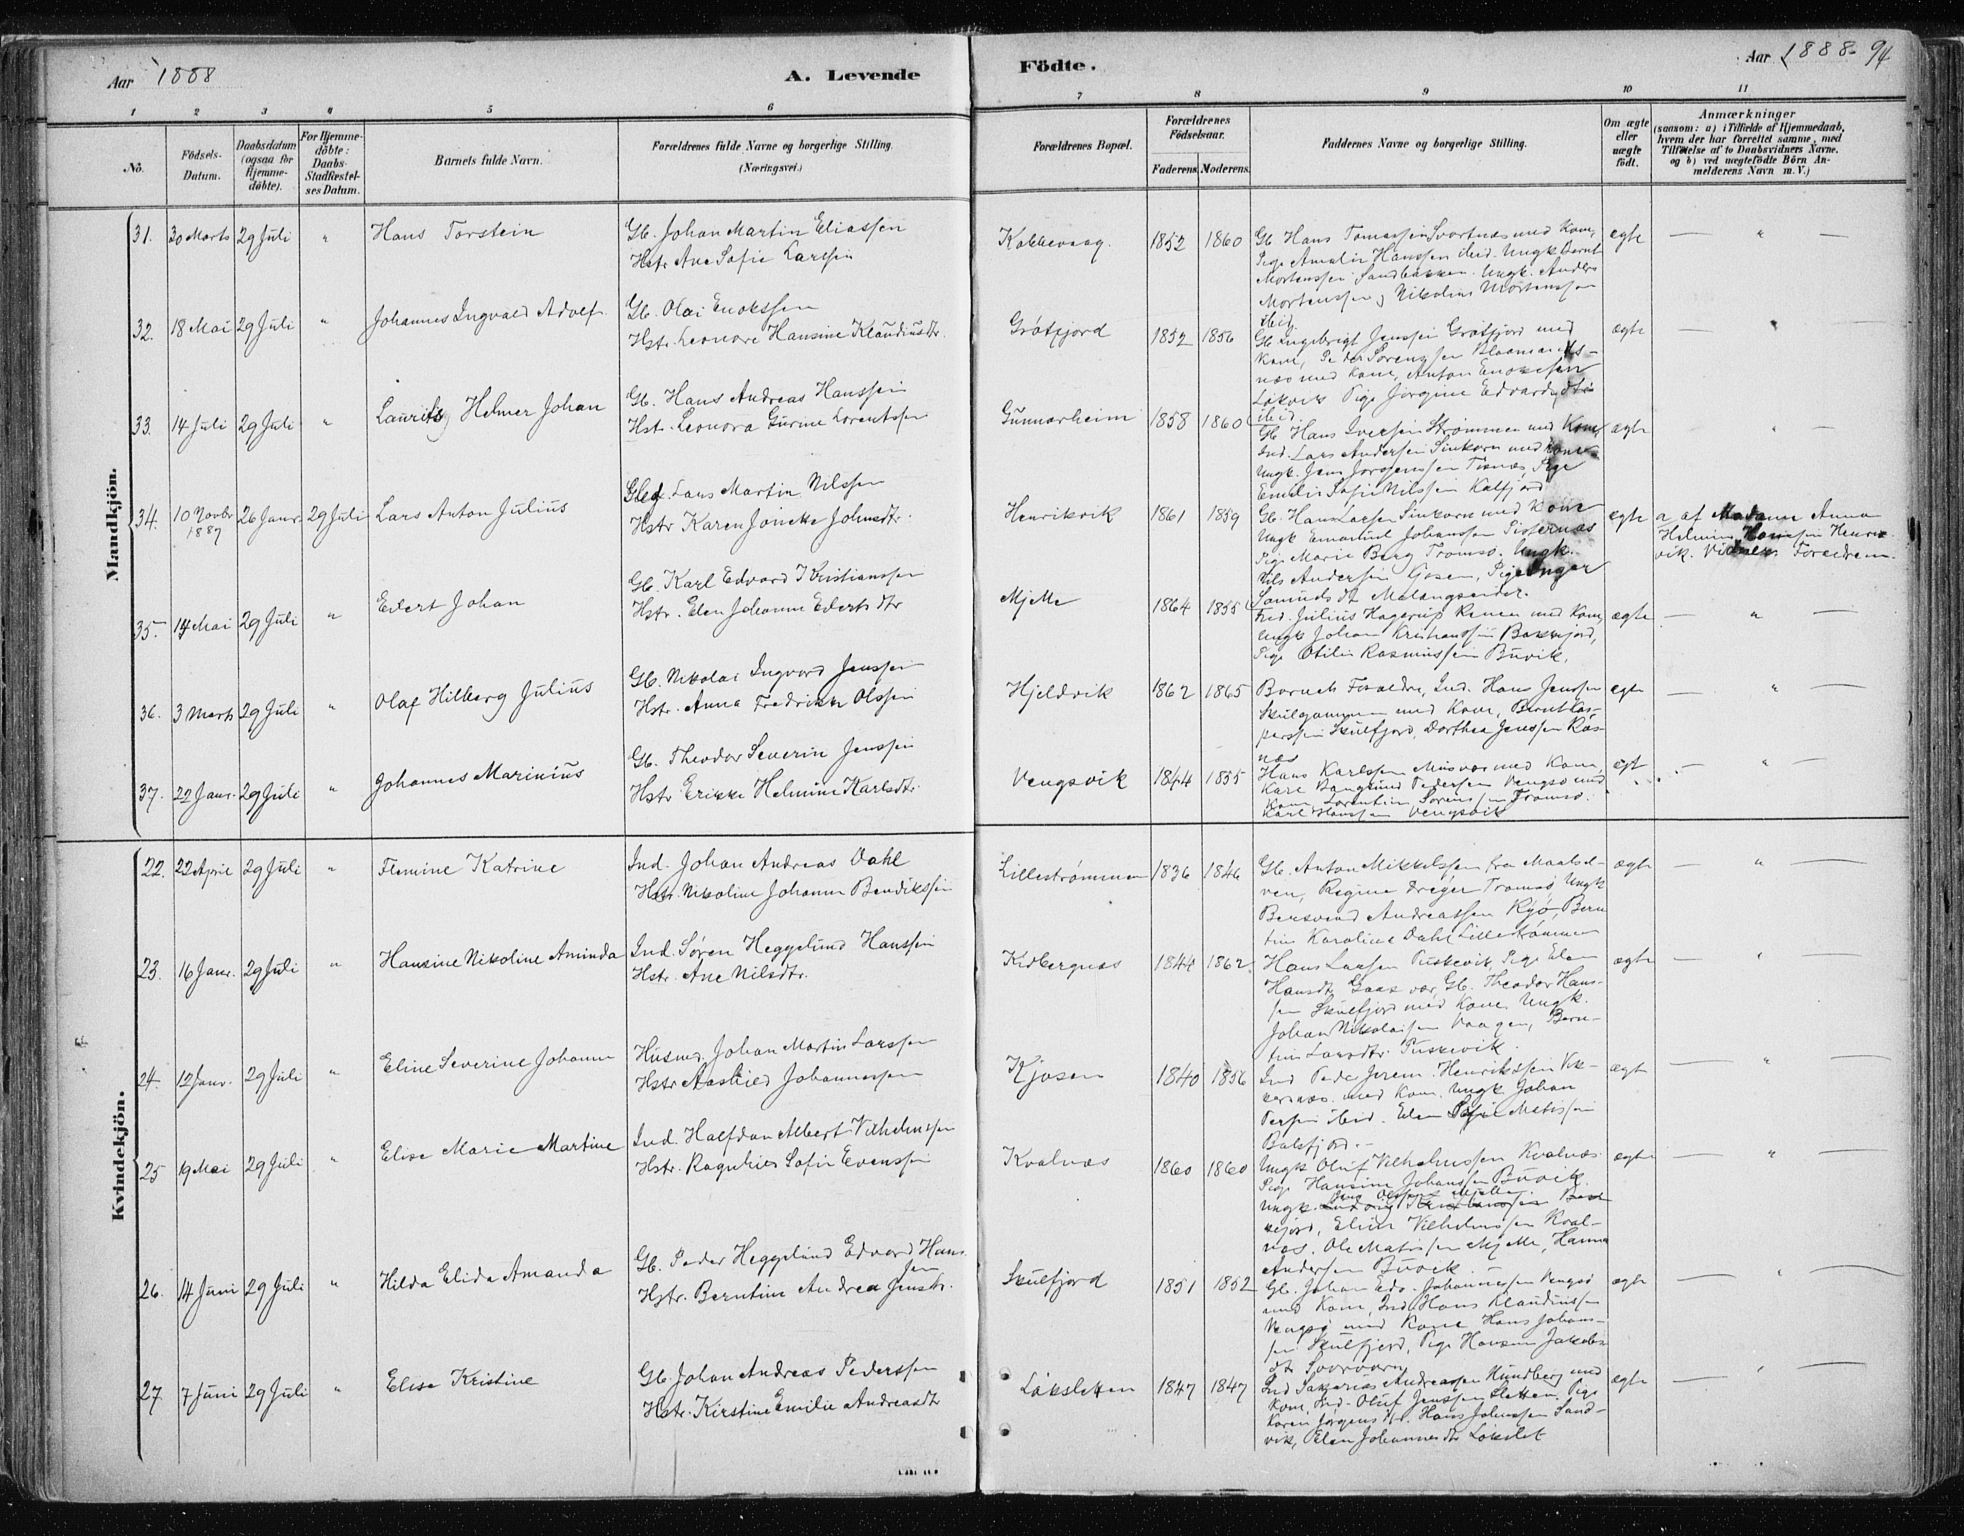 Aar 1888
A. Levende
Födte.
Aar 1888. 94
1 2 3 4 5 6 7 8 9 10 11
No.
Födsels-Datum.
Daabsdatum (ogsaa for Hjemmedöbte).
For Hjemmedöbte: Daabs-Stadfæstelses Datum.
Barnets fulde Navn.
Forældrenes fulde Navne og borgerlige Stilling.
(Næringsvei.)
Forældrenes Bopæl.
Forældrenes Födselsaar.
Faderens. Moderens.
Faddernes Navne og borgerlige Stilling.
Om ægte eller uægte födt.
Anmærkninger
(saasom: a) i Tilfælde af Hjemmedaab, hvem der har forrettet samme, med Tilföielse af to Daabsvidners Navne, og b) ved uægtefödte Börn Anmelderens Navn m. V.)
Mandkjön.
31. 30 Marts 29 Juli " Hans Torstein
Gb. Johan Martin Eliassen
Hstr. Ane Sofie Larsen
Kobbevaag. 1852 1860
Gb Hans Tomassen Svartnæs med Kone,
Pige Amalie Hanssen ibid. Ungk Bernt
Mortenssen Sandbakken. Ungk. Anders
Mortenssen, Nikolius Mortenssen
ibid
ægte — " —
32. 18 Mai 29 Juli " Johannes Ingvald Adolf
Gb. Olai Enokssen
Hstr. Leonore Hansine Klaudiusdtr.
Grøtfjord 1852 1856
Gb Ingebrigt Jenssen Grøtfjord med
Kone, Peder Sørenssen Blaamands-
næs med Kone, Anton Enokssen
Løkvik Pige Jørgine Edvardsdtr
ibid.
ægte —
33. 14 Juli 29 Juli " Lauritz Helmer Johan
Gb. Hans Andreas Hanssen
Hst. Leonora Gurine Lorentssen
Gunnarheim 1858 1860
Gb Hans Iversen Strømmen med Kone
Ind. Lars Andersen Sinkørn med Kone
Ungk. Jens Jørgenssen Tisnæs Pige
Emilie Sofie Nilssen Kalfjord
ægte — " —
34. 10 Novbr 1887 26 Janr. 29 Juli Lars Anton Julius
Gbd. Lars Martin Nilssen
Hstr Karen Joneke Johnsdtr.
Henrikvik 1861 1859
Gb. Hans Larsen Sinkørn med Kone
Ungk Emanuel Johanssen
Pige Marie Berg Tromsø. Ungk.
Nils Andersen Gosen, Pige Inger
Samuelsdt Malangseidet.
ægte
a af Madam Anna
Helmine Hanssen Henrik-
vik. Vidner: Foreldrene.
35. 14 Mai 29 Juli " Edert Johan
Gb. Karl Edvard Kristianssen
Hstr. Elen Johanne Edertsdtr
Mjelle 1864 1855
Ind. Julius Hagerup med Kone,
Ungk Johan Kristianssen Bakkejord,
Pige Otilie Rasmussen Buvik.
ægte — " —
36. 3 Marts 29 Juli " Olaf Hilberg Julius
Gb. Nikolai Ingvard Jenssen
Hstr. Anna Fredrikke Olssen
Hjeldvik 1862 1865
Barnets Foreldre, Ind. Hans Jenssen
Skulgammen med Kone, Bernt Kas-
perssen Skulfjord, Dorthea Jenssen Ras-
næs
ægte — " —
37. 22 Janr. 29 Juli " Johannes Marinius
Gb. Theodor Severin Jenssen
Hstr Erikke Helmine Karlsdtr.
Vengsvik 1844 1855
Hans Karlssen Musvær med Kone,
Karl Pederssen Vengsø med
Kone Lorentine Sørenssen Tromsø.
Karl Hanssen Vengsvik
ægt — " —
Kvindekjön.
22. 22 April 29 Juli " Flemine Katrine
Ind. Johan Andreas Dahl
Hstr. Nikoline Johanne Bendikssen
Lillestrømmen 1836 1846
Gb. Anton Mikkelssen fra Maalsel-
ven, Regine Dreyer Tromsø, Ungk
Bersvend Andreassen Ryø, Bern
tine Karoline Dahl Lillestrømmen
ægte — " —
23. 16 Janr. 29 Juli " Hansine Nikoline Aminda
Ind. Søren Heggelund Hanssen
Hstr. Ane Nilsdtr.
Kidbergnæs 1844 1862
Hans Larsen Buskevik, Pige Elen
Hansdt Gaasvær, Gb. Theodor Hans-
sen Skulfjord med Kone Ungk.
Johan Nikolaisen Vaagen, Bern-
tine Larsdtr. Buskevik.
ægte — " —
24. 12 Janr. 29 Juli " Eline Severine Johanne
Husmd. Johan Martin Larssen
Hstr Aashild Johannessen
Kjosen 1840 1856
Ind Peder Jerem. Henrikssen Vik-
næs. med Kone. Ungk Johan
Perssen ibid. Elen Sofie Matissen
Balsfjord.-
ægt — " —
25 19 Mai 29 Juli " Elise Marie Martine
Ind. Halfdan Albert Vilhelmssen
Hstr. Ragnhild Sofie Evenssen
Kvalnæs 1860 1860
Ungk Oluf Vilhelmssen Kvalnæs
Pige Hansine Johanssen Buvik.
Jens Olssen Mjelle
Ungk. Ludvig Kristianssen Bak
kejord, Elise Vilhelmssen Kval-
næs. Ole Matissen Mjelle, Hanna
Andersen Buvik. -
ægte — " —
26. 14 Juni 29 Juli " Hilda Elida Amanda
Gb. Peder Heggelund Edvard Hans-
sen
Hstr. Berntine Andrea Jensdtr.
Skulfjord 1851 1852
Gb. Johan Edv. Johannessen Vengsø
med Kone, Ind Hans Klaudiussen
Vengsø med Kone Hans Johans-
sen Skulfjord, Pige Hansine Jakobs
dt
ægte — " —
27. 7 Juni 29 Juli " Elise Kristine
Gb. Johan Andreas Pederssen
Hstr. Kirstine Emilie Andreasdtr
Løksletten 1847 1847
Ind Sakarias Andreassen Hundberg med
Kone, Ind. Oluf Jenssen Sletten. Pige
Karen Jørgensdt. Hans Johnssen Sand-
vik, Elen Johannesdtr Løkslet
ægte — " —